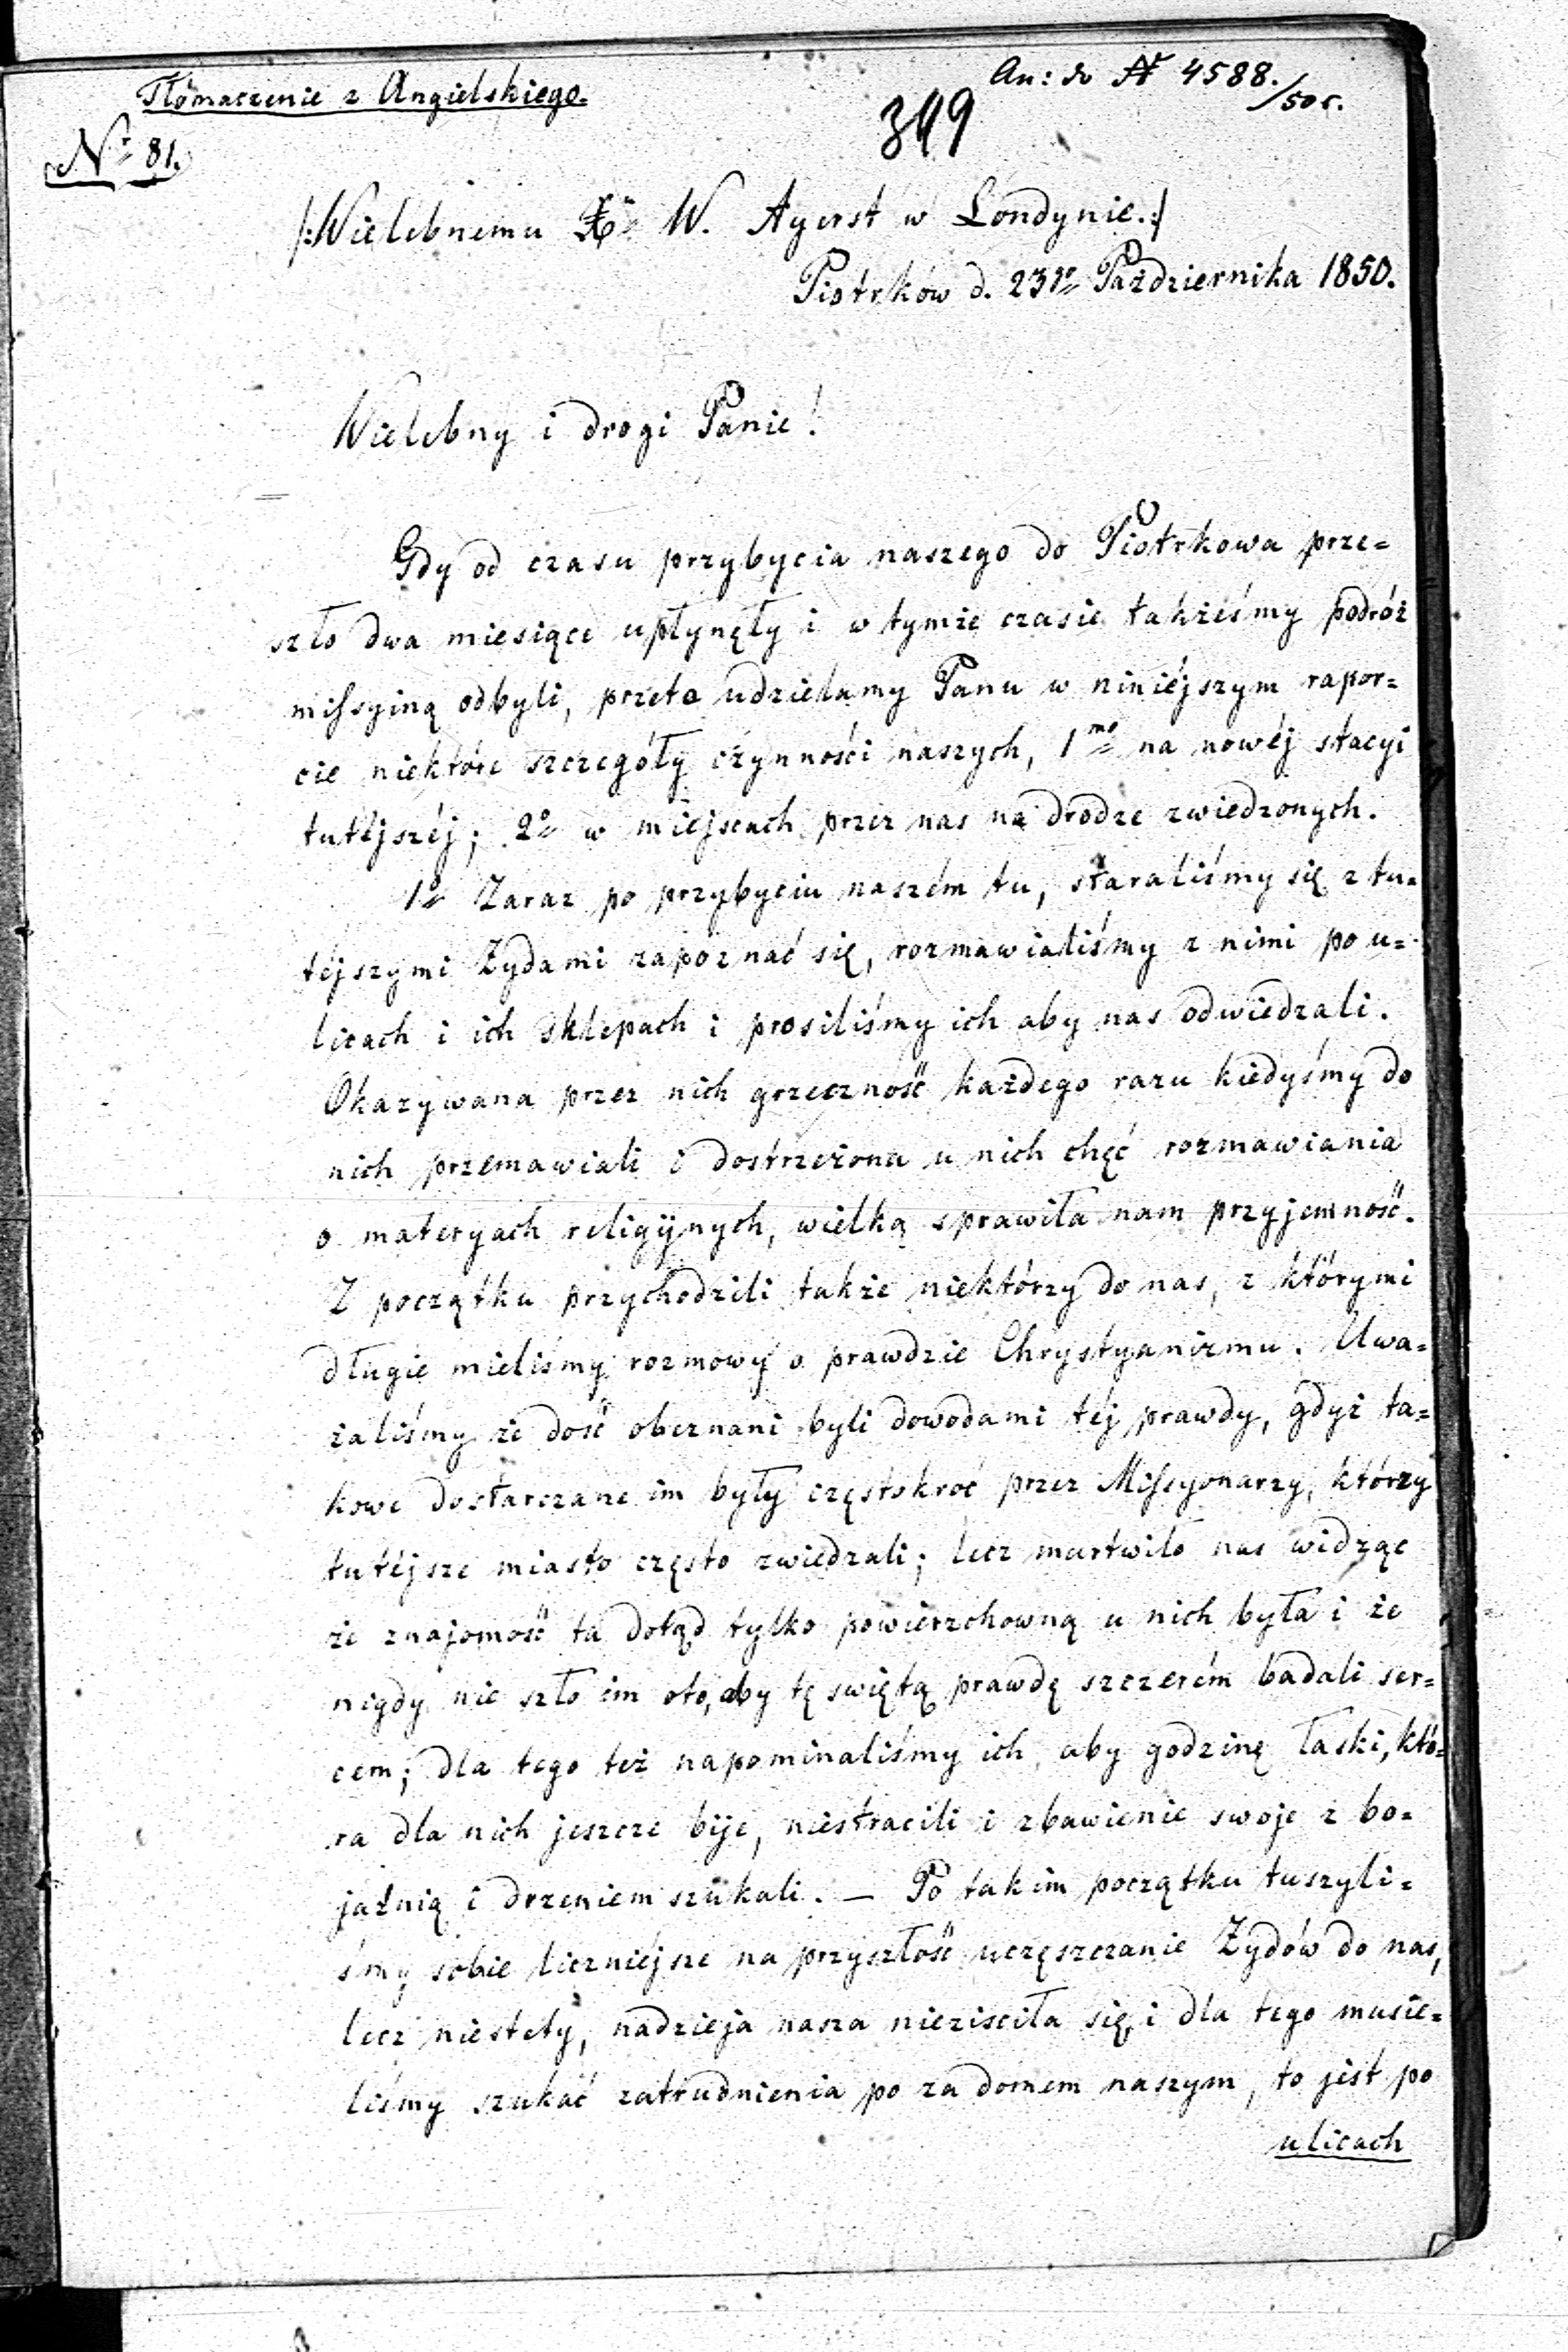 Tłómaczenie z Angielskiego.
An: do N 4588./50 r.
349
Nr 81.
/:Wielebnemu X. W. Ayerst w Londynie.:/
Piotrków d. 23go Października 1850.
Wielebny i drogi Panie!
Gdy od czasu przybycia naszego do Piotrkowa prze=
szło dwa miesiące upłynęły i w tymże czasie takżeśmy podróż
missyiną odbyli, przeto udzielamy Panu w niniéjszym rapor=
cie niektóre szczegóły czynności naszych, 1mo na nowéj stacyi
tutéjszéj; 2o w miejscach przez nas na drodze zwiedzonych.
1o Zaraz po przybyciu naszém tu, staraliśmy się z tu=
téjszymi Żydami zapoznać się, rozmawialiśmy z nimi po u=
licach i ich sklepach i prosiliśmy ich aby nas odwiedzali.
Okazywana przez nich grzeczność każdego razu kiedyśmy do
nich przemawiali i dostrzeżona u nich chęć rozmawiania
o materyach religijnych, wielką sprawiła nam przyjemność.
Z początku przychodzili także niektórzy do nas, z którymi
długie mieliśmy rozmowy o prawdzie Chrystyanizmu. Uwa=
żaliśmy że dość obeznani byli dowodami téj prawdy, gdyż ta=
kowe dostarczane im były częstokroć przez Missyonarzy, którzy
tutéjsze miasto często zwiedzali; lecz martwiło nas widząc
że znajomość ta dotąd tylko powierzchowną u nich była i że
nigdy nie szło im oto, aby tę swiętą prawdę szczerém badali ser=
cem; dla tego też napominaliśmy ich, aby godzinę łaski, któ=
ra dla nich jeszcze bije, niestracili i zbawienie swoje z bo=
jaźnią i drzeniem szukali. — Po takim początku tuszyli=
śmy sobie liczniéjsze na przyszłość uczęszczanie Żydów do nas,
lecz niestety, nadzieja nasza nieziściła się, i dla tego musie=
liśmy szukać zatrudnienia po za domem naszym, to jest po
ulicach